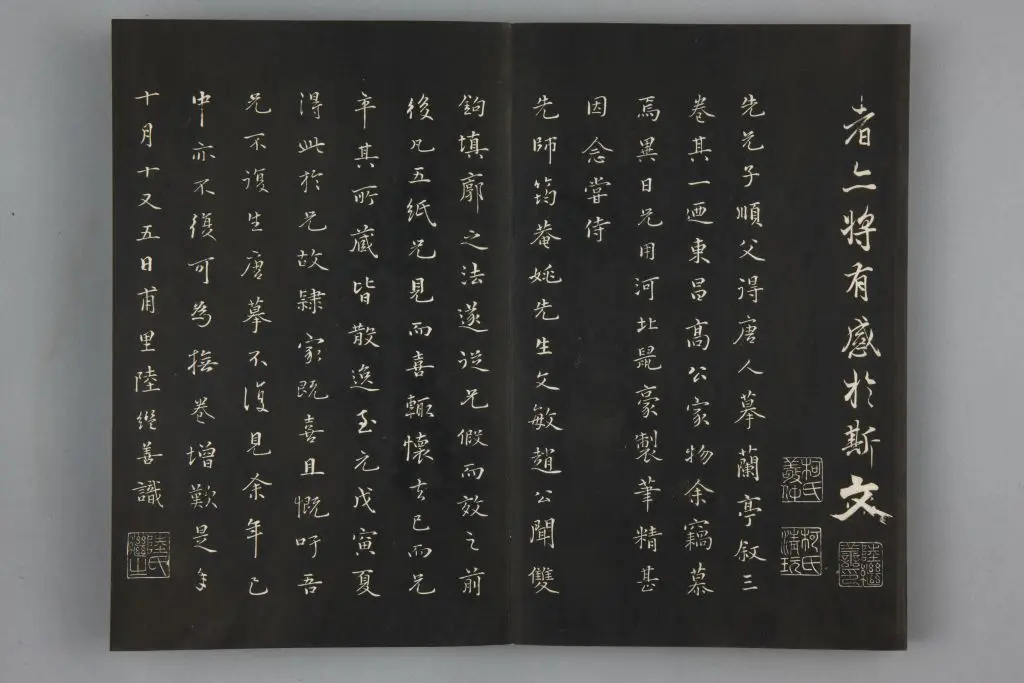 者亦將有感於斯文
先兄子順父得唐人摹蘭亭叙三
卷其一迺東昌高公家物余竊慕
焉異日兄用河北鼠豪製筆精甚
因念嘗侍
先師筠菴姚先生文敏趙公聞雙
鉤填廓之法遂從兄假而效之前
後凡五紙兄見而喜輒懷去已而兄
卒其所藏皆散逸至元戊寅夏
得此於兄故隸家既喜且慨吁吾
兄不復生唐摹不復見余年已
中亦不復可為撫卷增歎是年
十月十又五日甫里陸繼善識
柯氏敬仲
柯氏清玩
陸繼善印
陸氏繼之